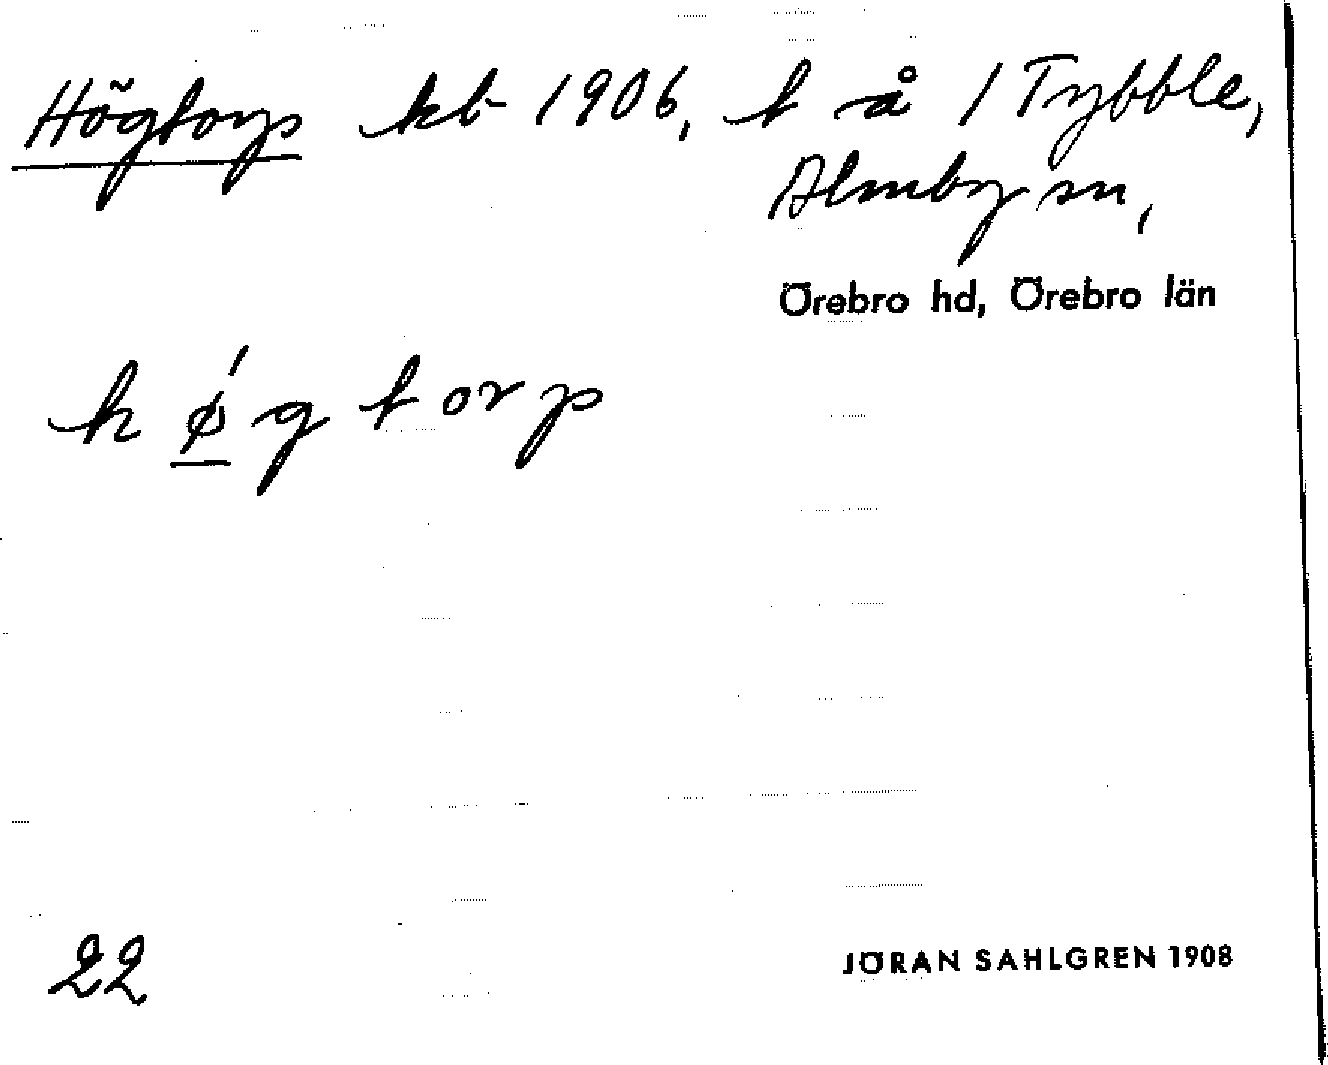 Högtorp kb 1906, t å 1 Tybble,
Almby sn,
Örebro hd, Örebro län
h ǿ g t o r p
22
JÖRAN SAHLGREN 1908